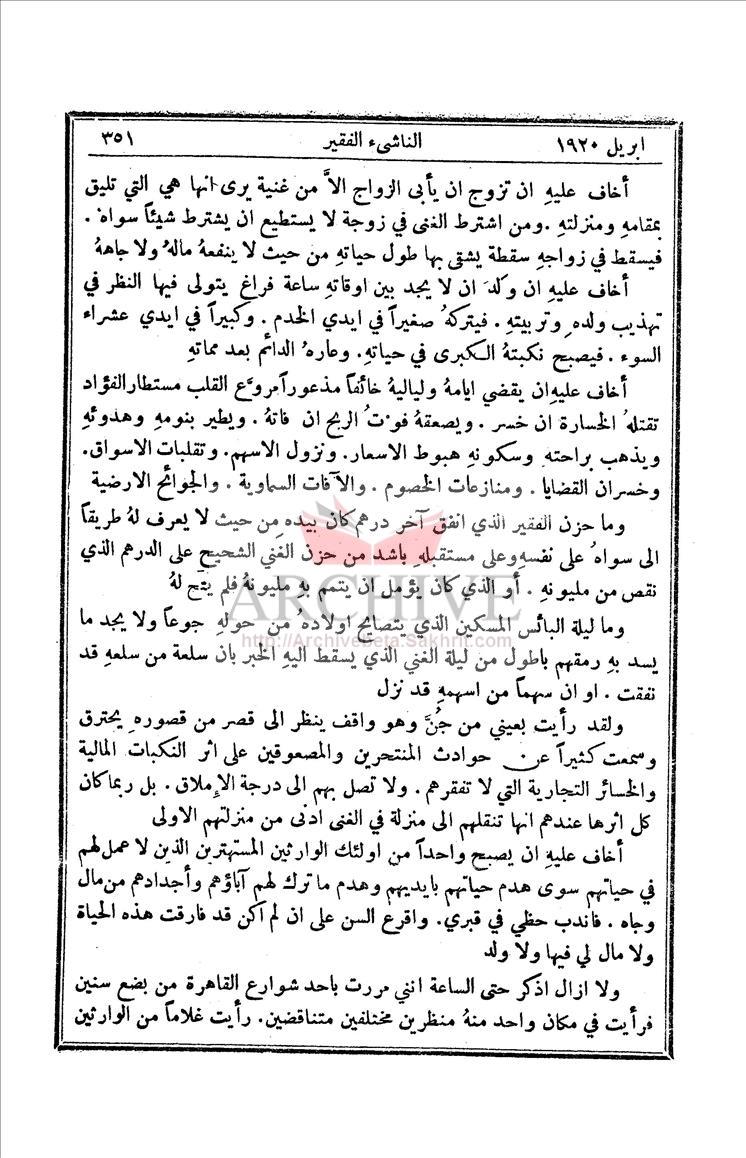 ابريل ١٩٢٠ الناشىء الفقير ٣٥١
أخاف عليهِ ان تزوج ان يأبى الزواج الاَّ من غنية يرى انها هي التي تليق
بمقامهِ ومنزلتهِ . ومن اشترط الغنى في زوجة لا يستطيع ان يشترط شيئاً سواهُ .
فيسقط في زواجهِ سقطة يشقى بها طول حياتهِ من حيث لا ينفعهُ مالهُ ولا جاههُ
أخاف عليهِ ان وُلدَ ان لا يجد بين اوقاتهِ ساعة فراغ يتولى فيها النظر في
تهذيب ولدهِ وتربيتهِ . فيتركهُ صغيراً في ايدي الخدم . وكبيراً في ايدي عشراء
السوء . فيصبح نكبتهُ الكبرى في حياتهِ . وعارهُ الدائم بعد مماتهِ
أخاف عليهِ ان يقضي ايامهُ ولياليهُ خائفاً مذعوراً مروَّع القلب مستطار الفؤاد
تقتلهُ الخسارة ان خسر . ويصعقهُ فوتُ الربح ان فاتهُ . ويطير بنومهِ وهدوئهِ
ويذهب براحتهِ وسكونهِ هبوط الاسعار . ونزول الاسهم . وتقلبات الاسواق .
وخسران القضايا . ومنازعات الخصوم . والآفات السماوية . والجوائح الارضية
وما حزن الفقير الذي انفق آخر درهم كان بيدهِ من حيث لا يعرف لهُ طريقاً
الى سواهُ على نفسهِ وعلى مستقبلهِ باشد من حزن الغني الشحيح على الدرهم الذي
نقص من مليونهِ . أو الذي كان يؤمل ان يتمم بهِ مليونهُ فلم يتَح لهُ
وما ليلة البائس المسكين الذي يتصايح اولادهُ من حولهِ جوعاً ولا يجد ما
يسد بهِ رمقهم باطول من ليلة الغني الذي يسقط اليهِ الخبر بان سلعة من سلعهِ قد
نفقت . او ان سهماً من اسهمهِ قد نزل
ولقد رأيت بعيني من جُنَّ وهو واقف ينظر الى قصر من قصورهِ يحترق
وسمعت كثيراً عن حوادث المنتحرين والمصعوقين على اثر النكبات المالية
والخسائر التجارية التي لا تفقرهم . ولا تصل بهم الى درجة الإملاق . بل ربما كان
كل اثرها عندهم انها تنقلهم الى منزلة في الغنى ادنى من منزلتهم الاولى
أخاف عليهِ ان يصبح واحداً من اولئك الوارثين المستهترين الذين لا عمل لهم
في حياتهم سوى هدم حياتهم بايديهم وهدم ما ترك لهم آباؤهم وأجدادهم من مال
وجاه . فاندب حظي في قبري . واقرع السن على ان لم اكن قد فارقت هذه الحياة
ولا مال لي فيها ولا ولد
ولا ازال اذكر حتى الساعة انني مررت باحد شوارع القاهرة من بضع سنين
فرأيت في مكان واحد منهُ منظرين مختلفين متناقضين . رأيت غلاماً من الوارثين
ARCHIVE
http://Archivebeta.Sakhrit.com